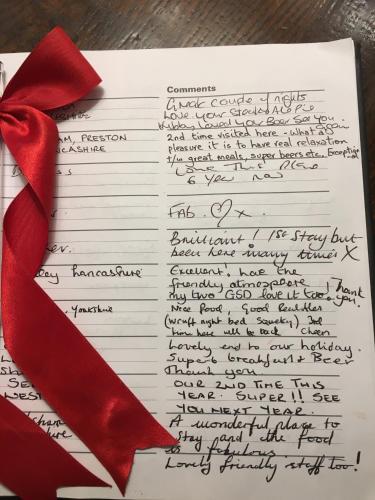 Comments
Great couple of nights
Love your Steak & Ale Pie
Hubby Loved your Beer See you
Soon
AM, PRESTON
NCASHIRE
2nd time visited here - what a
pleasure it is to have real relaxation
great meals, super beers etc. Exceptional
Love This Place
6 Year now
FAB. x
Brilliant! 1st Stay but
been here many times X
ley Lancashire
Excellent! Love the
friendly atmosphere
my two GSD love it too. Thank
you!
Yorkshire
Nice Food, Good Real Ales
night bed Squeaky) 3rd
time here will be back Cheers
Lovely end to our holiday.
Superb breakfast & Beer
Thank you
OUR 2ND TIME THIS
YEAR. SUPER!! SEE
YOU NEXT YEAR.
A wonderful place to
Stay and the food
is fabulous.
Lovely friendly staff too!